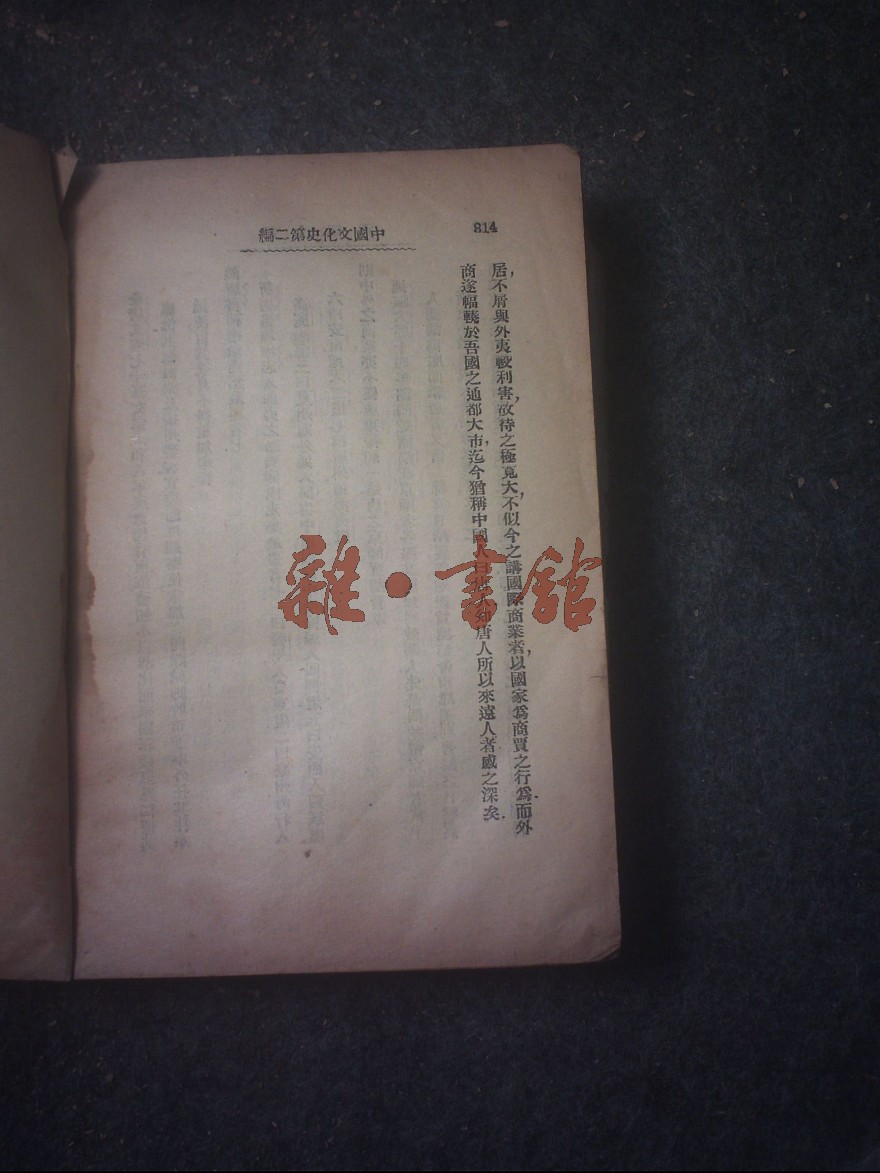 814
中國文化史第二編
居,不屑與外夷較利害,故待之極寬大,不似今之講國際商業者,以國家為商賈之行為.而外
商遂輻輳於吾國之通都大市,迄今猶稱中國人曰唐人.知唐人所以來遠人者感之深矣.
雜·書館